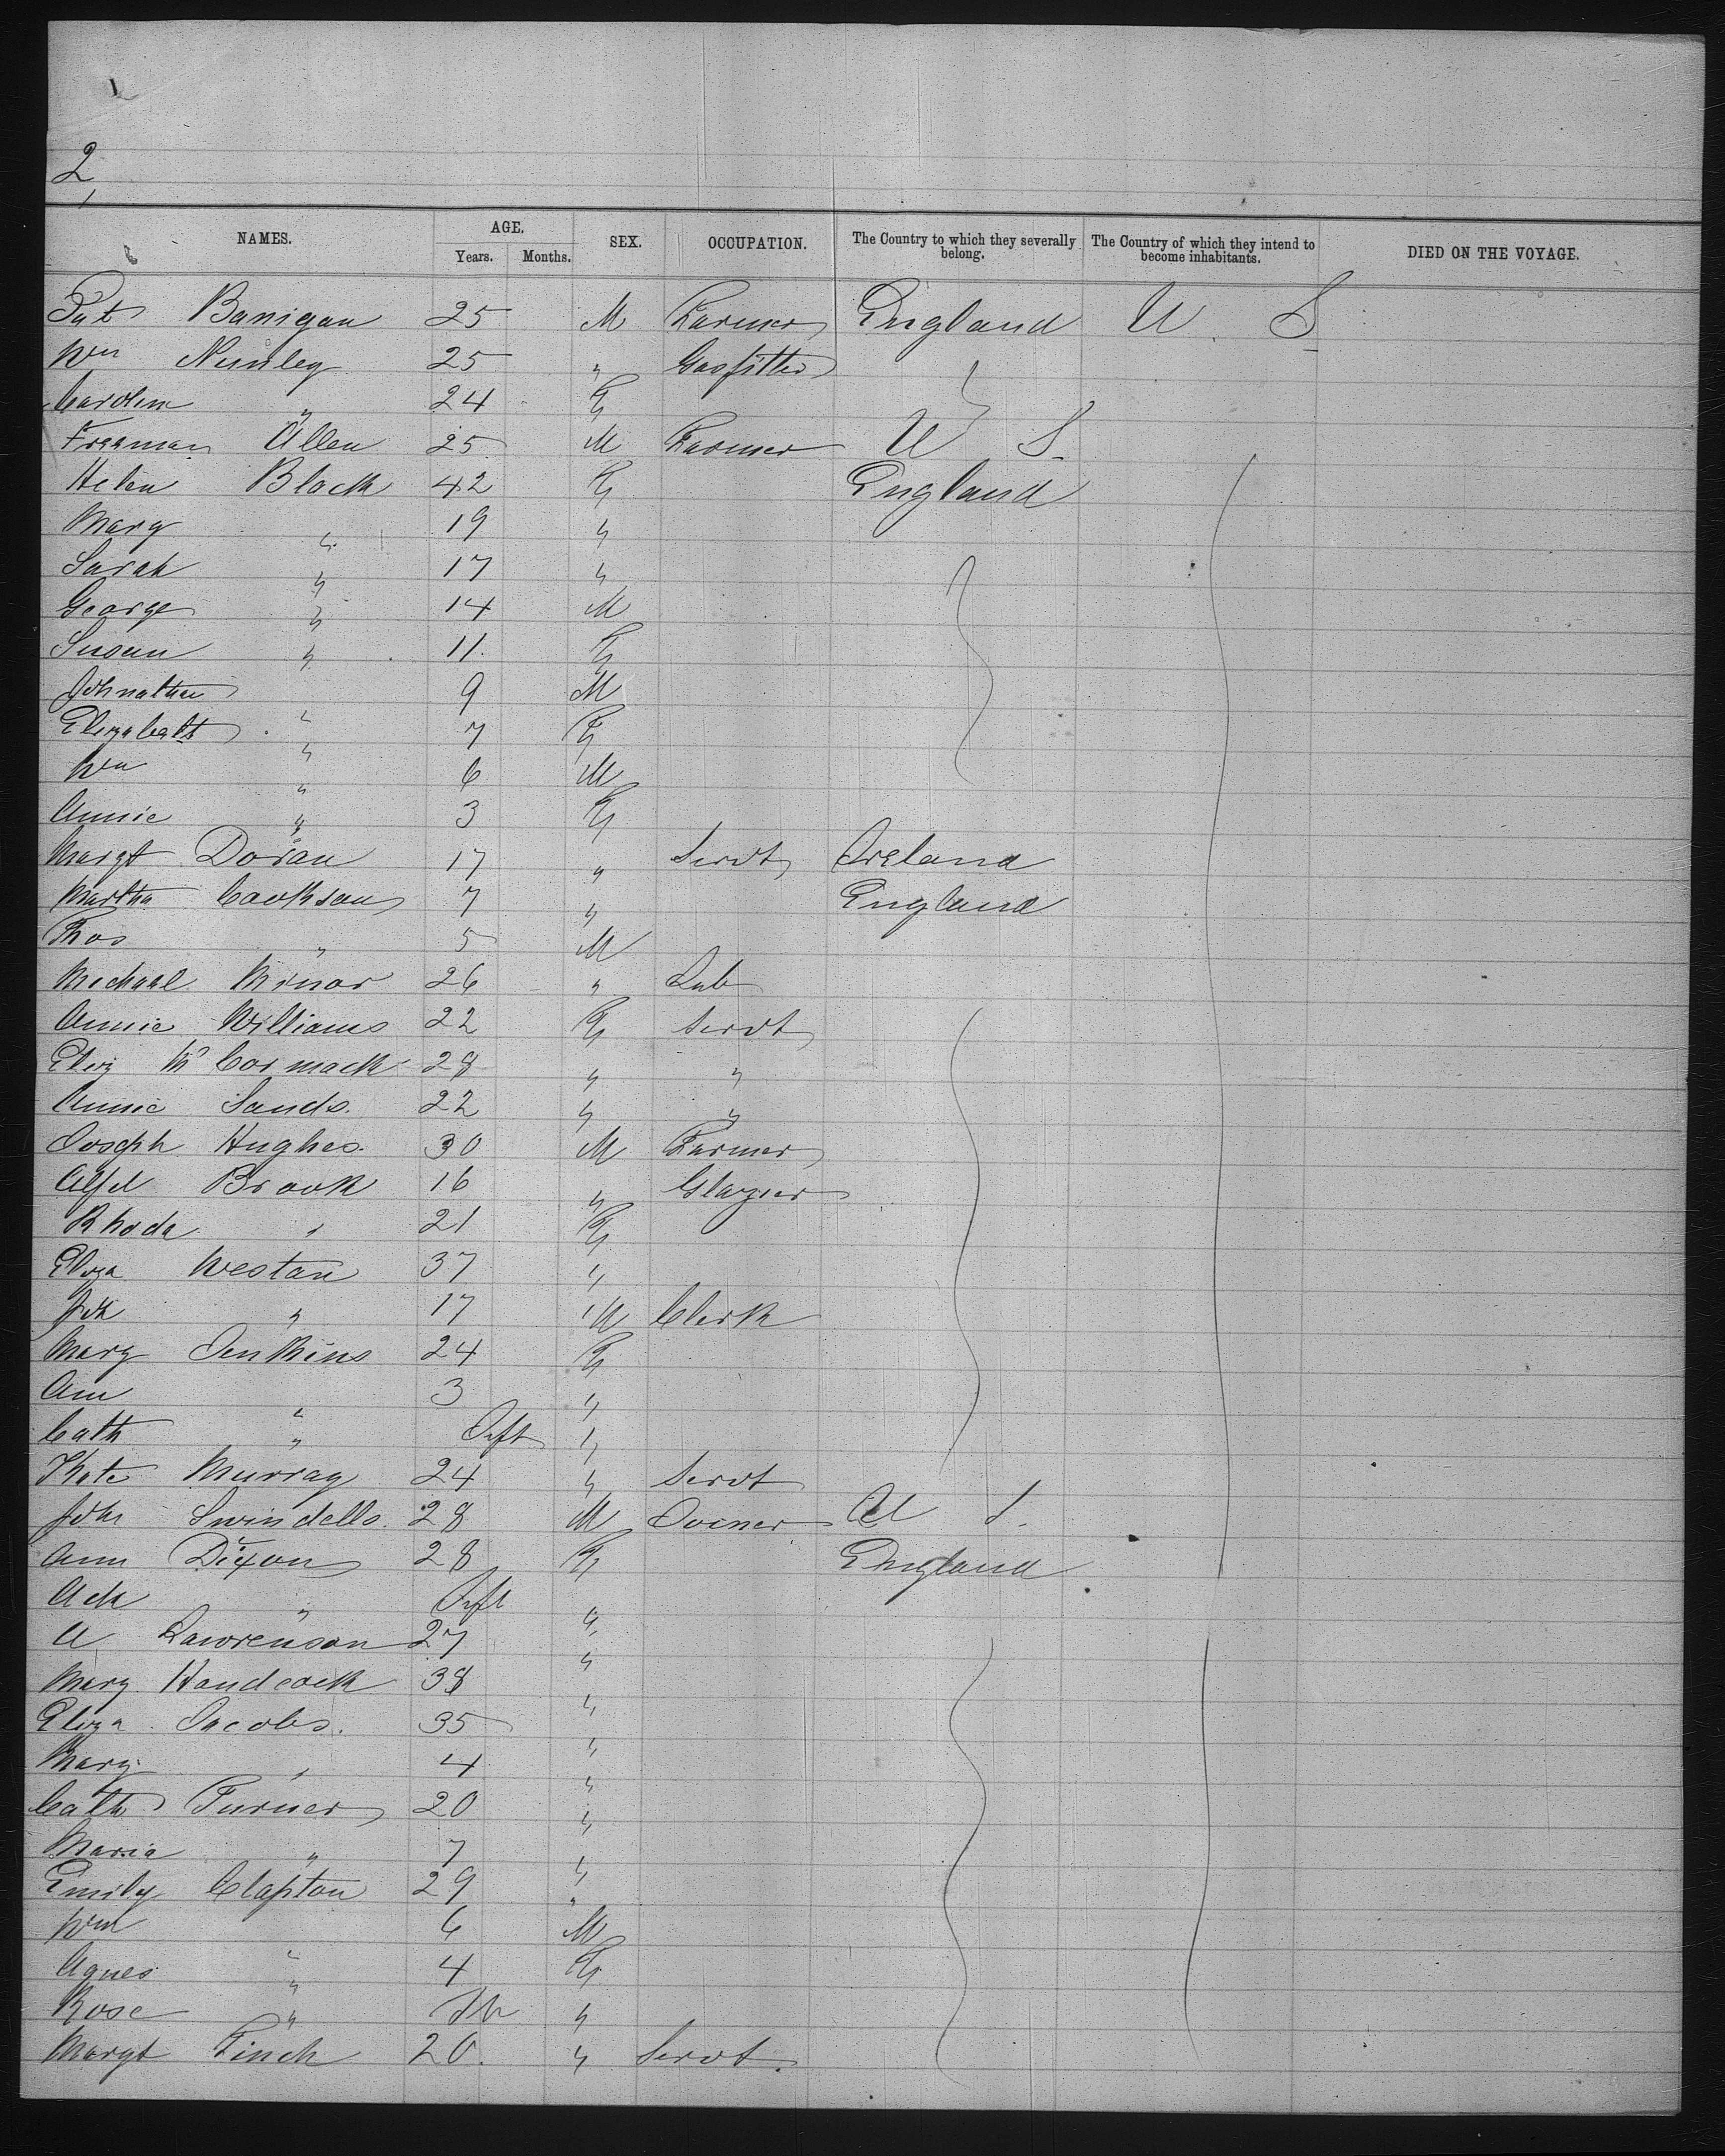 2
NAMES. AGE. Years. Months. SEX. OCCUPATION. The Country to which they severally belong. The Country of which they intend to become inhabitants. DIED ON THE VOYAGE.
Pat Banigan 25 M Farmer England U. S
Wm Nunley 25 " Gasfitter
Carolin " 24 F
Freeman Allen 25 M Farmer U S.
Helen Black 42 F England
Mary " 19 "
Sarah " 17 "
George " 14 M
Susan " 11. F
Johnathan " 9 M
Elizabeth " 7 F
Wm " 6 M
Annie " 3 F
Margt Doran 17 " Servt Ireland
Martha Cookson 7 " England
Thos " 5 M
Michael Minor 26 " Lab
Annie Williams 22 F Servt
Eliz McCormack 28 " "
Annie Sands. 22 " "
Joseph Hughes. 30 M Farmer
Alfd Brook 16 " Glazier
Rhoda " 21 F
Eliza Weston 37 "
Jno " 17 M Clerk
Mary Jenkins 24 F
Ann " 3 "
Cath " Inft "
Kate Murray 24 " Servt
John Swindells. 28 M U S.
Ann Dixon 28 F England
Ada " Inft "
A Lawrenson 27 "
Mary Handcock 38 "
Eliza Jacobs. 35 "
Mary " 4 "
Cath Turner 20 "
Maria " 7 "
Emily Clapton 29 "
Wm " 6 M
Agnes " 4 F
Rose " "
Margt Finch 20. " Servt.